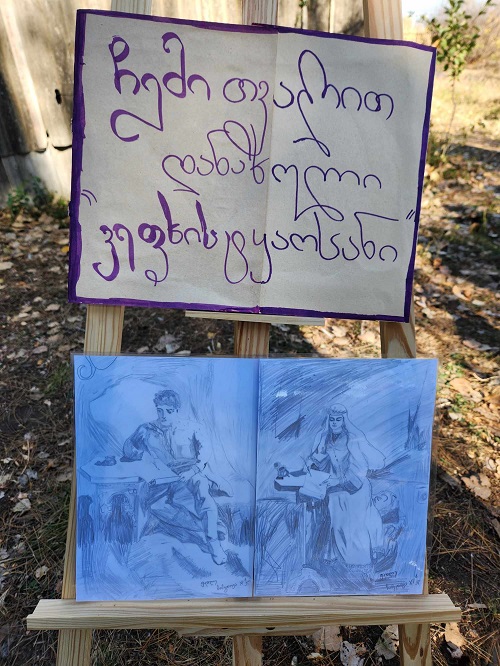 ჩემი თვალით
დანახული
"ვეფხისტყაოსანი"